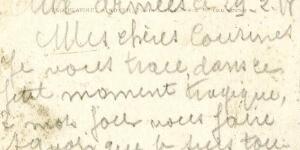 Aux armées le 29-2-18
Mes chères Cousines
Je vous trace, dans ce
petit moment tragique,
2 mots pour vous faire
savoir que je suis tou